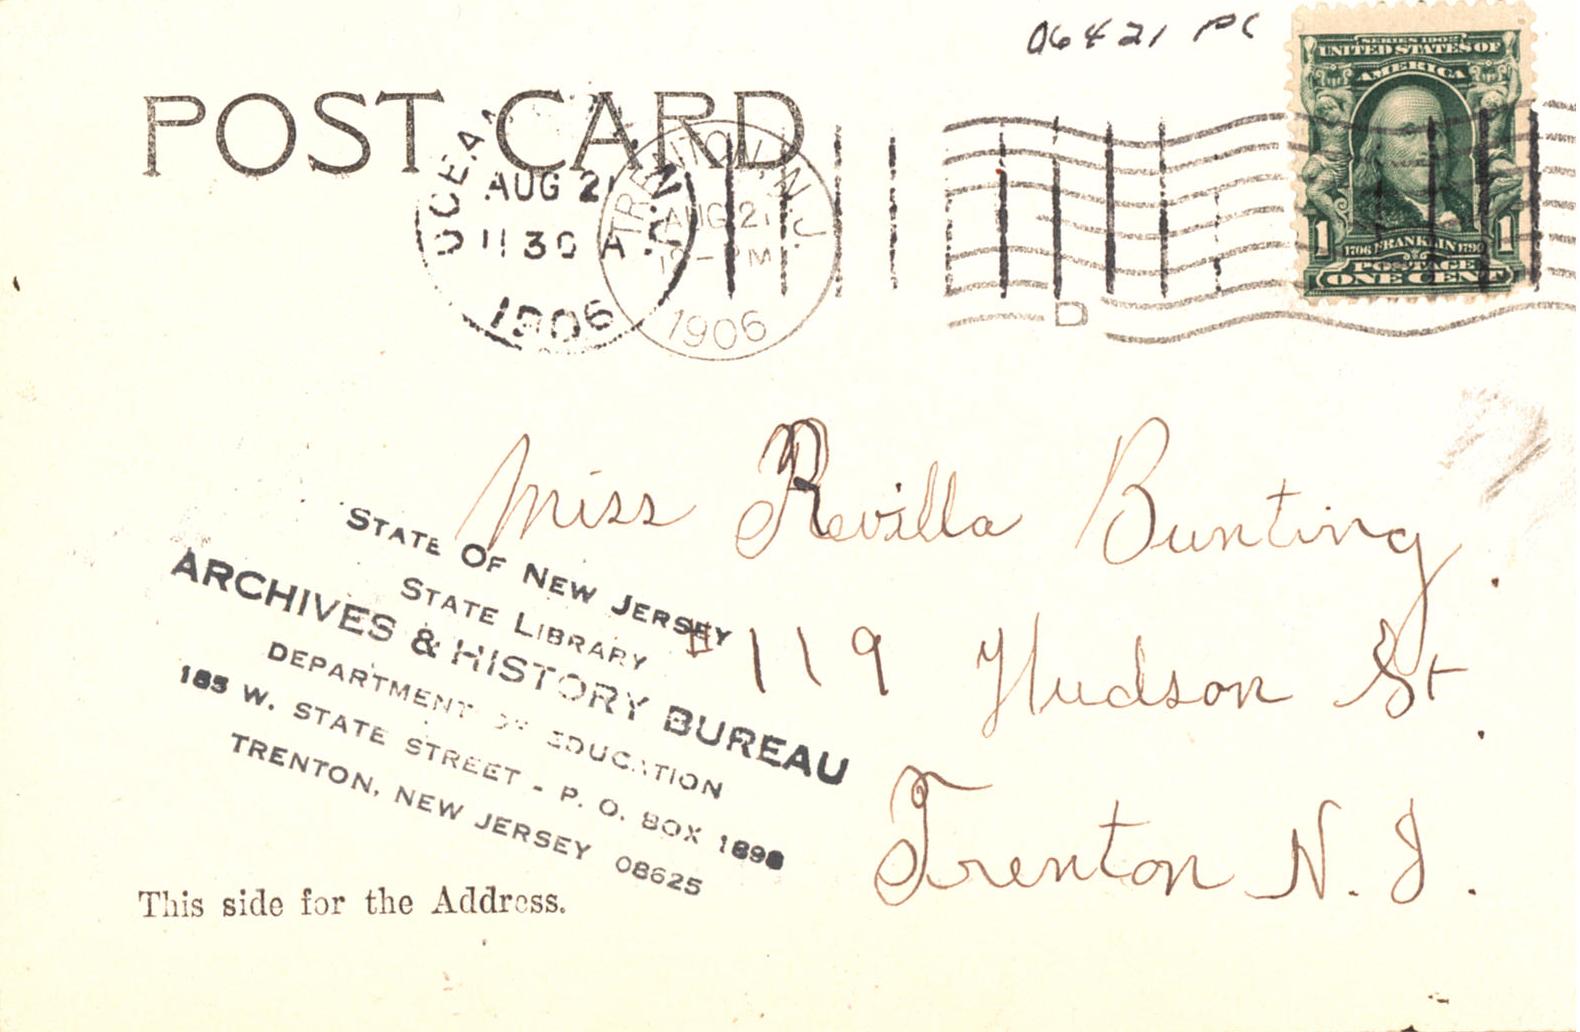 06421 PC
SERIES 1902
UNITED STATES OF
AMERICA
1706 FRANKLIN 1790
POSTAGE
1 1
ONE CENT
POST CARD
OCEAN
AUG 21
11 30 A
N.J.
1906
TRENTON, N.J.
AUG 21
1906
D
Miss Revilla Bunting.
# 119 Hudson St.
Trenton N. J.
STATE OF NEW JERSEY
STATE LIBRARY
ARCHIVES & HISTORY BUREAU
DEPARTMENT OF EDUCATION
185 W. STATE STREET - P. O. BOX 1898
TRENTON, NEW JERSEY 08625
This side for the Address.